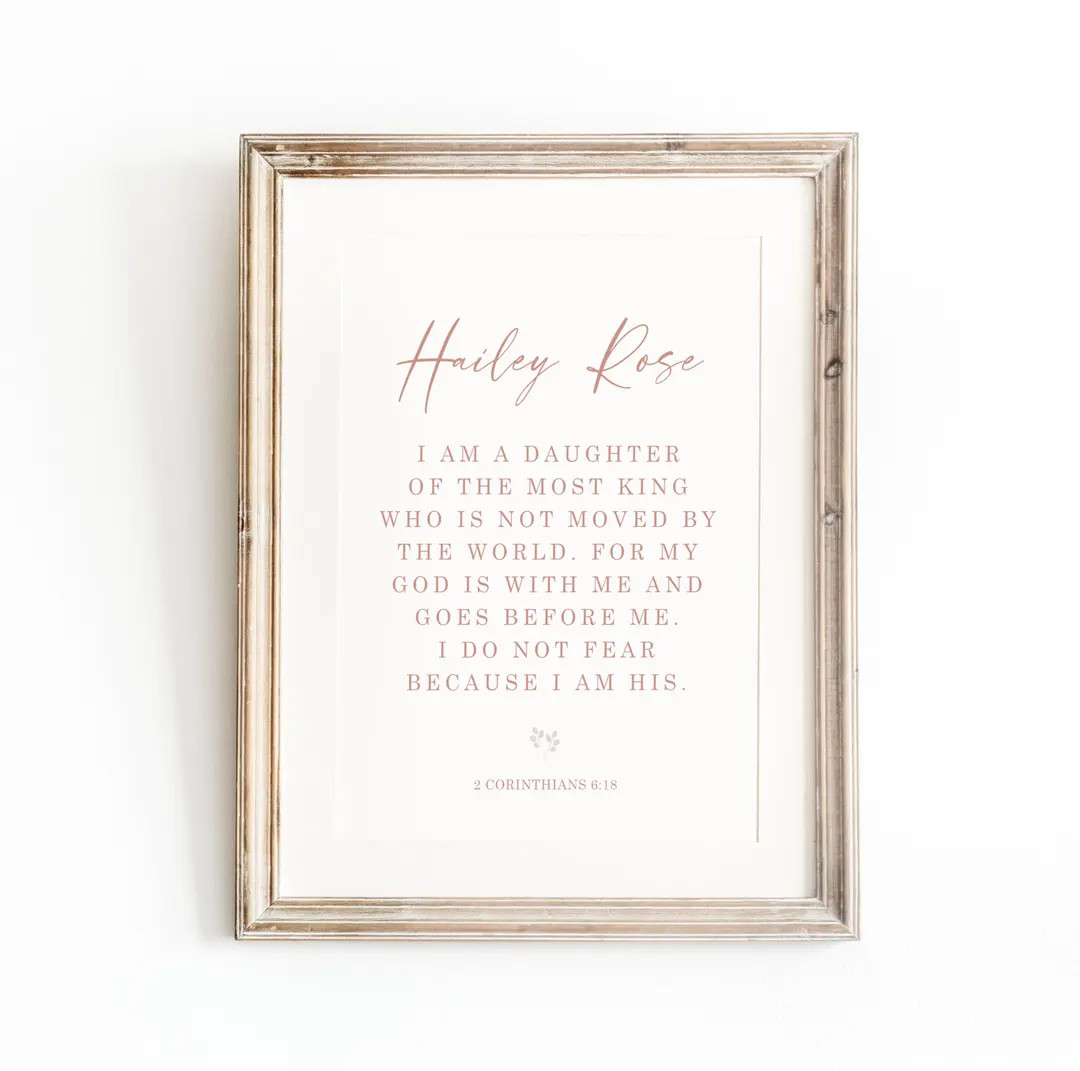 Hailey Rose
I AM A DAUGHTER
OF THE MOST KING
WHO IS NOT MOVED BY
THE WORLD. FOR MY
GOD IS WITH ME AND
GOES BEFORE ME.
I DO NOT FEAR
BECAUSE I AM HIS.
2 CORINTHIANS 6:18